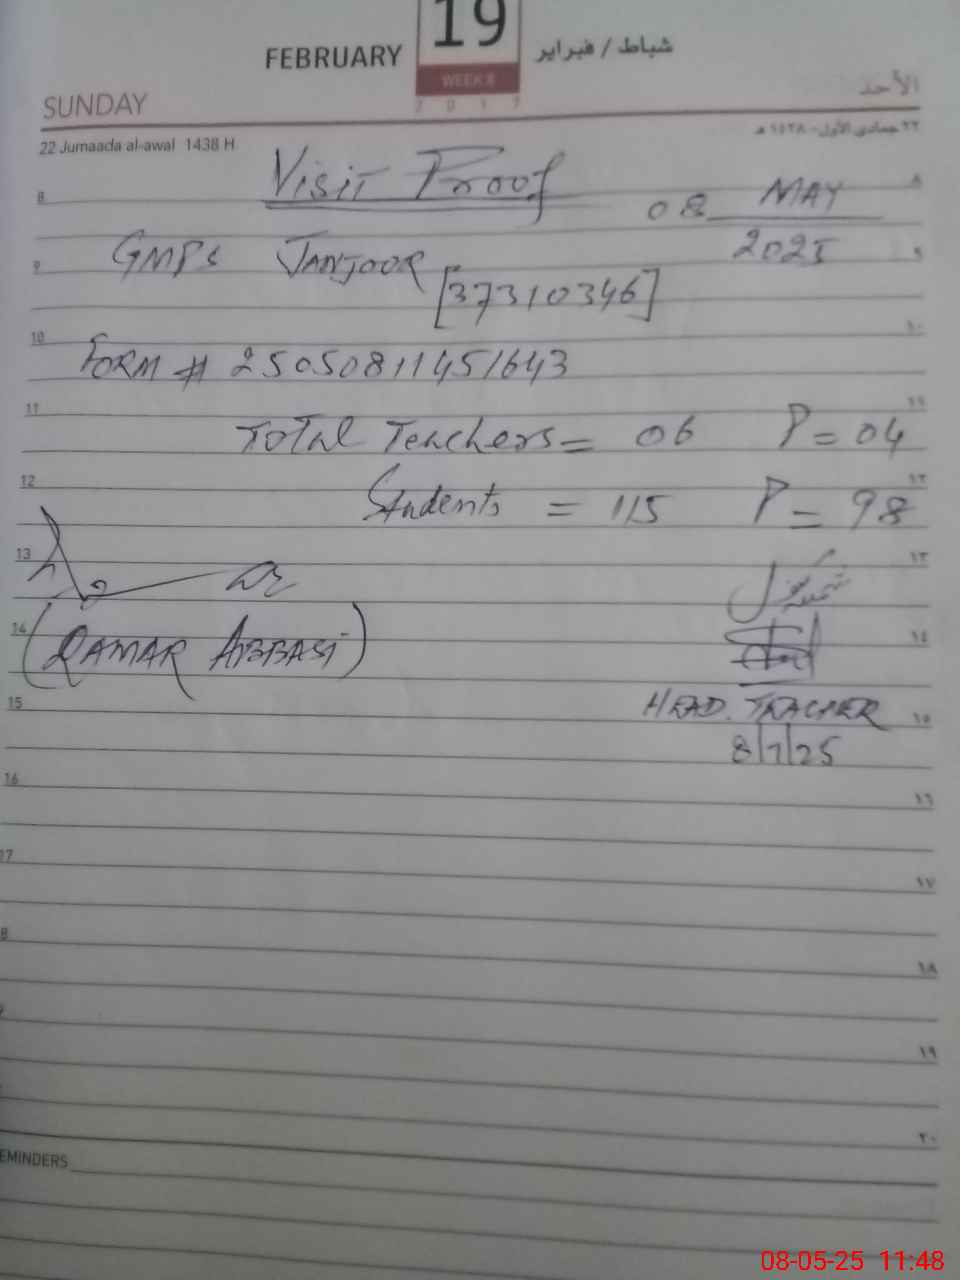 19
FEBRUARY
شباط / فبراير
WEEK 8
2 0 1 7
SUNDAY
الأحد
22 Jumaada al-awal 1438 H
٢٢ جمادى الأول - ١٤٣٨ هـ
Visit Proof
8
٨
08 MAY
2025
GMPS JANJOOR
9
٩
[37310346]
10
١٠
FORM # 25050811451643
11
١١
Total Teachers = 06 P = 04
12
١٢
Students = 115 P = 98
13
١٣
14
١٤
(QAMAR ABBASI)
15
١٥
HEAD. TEACHER
16
١٦
17
١٧
8
١٨
١٩
٢٠
EMINDERS
08-05-25 11:48